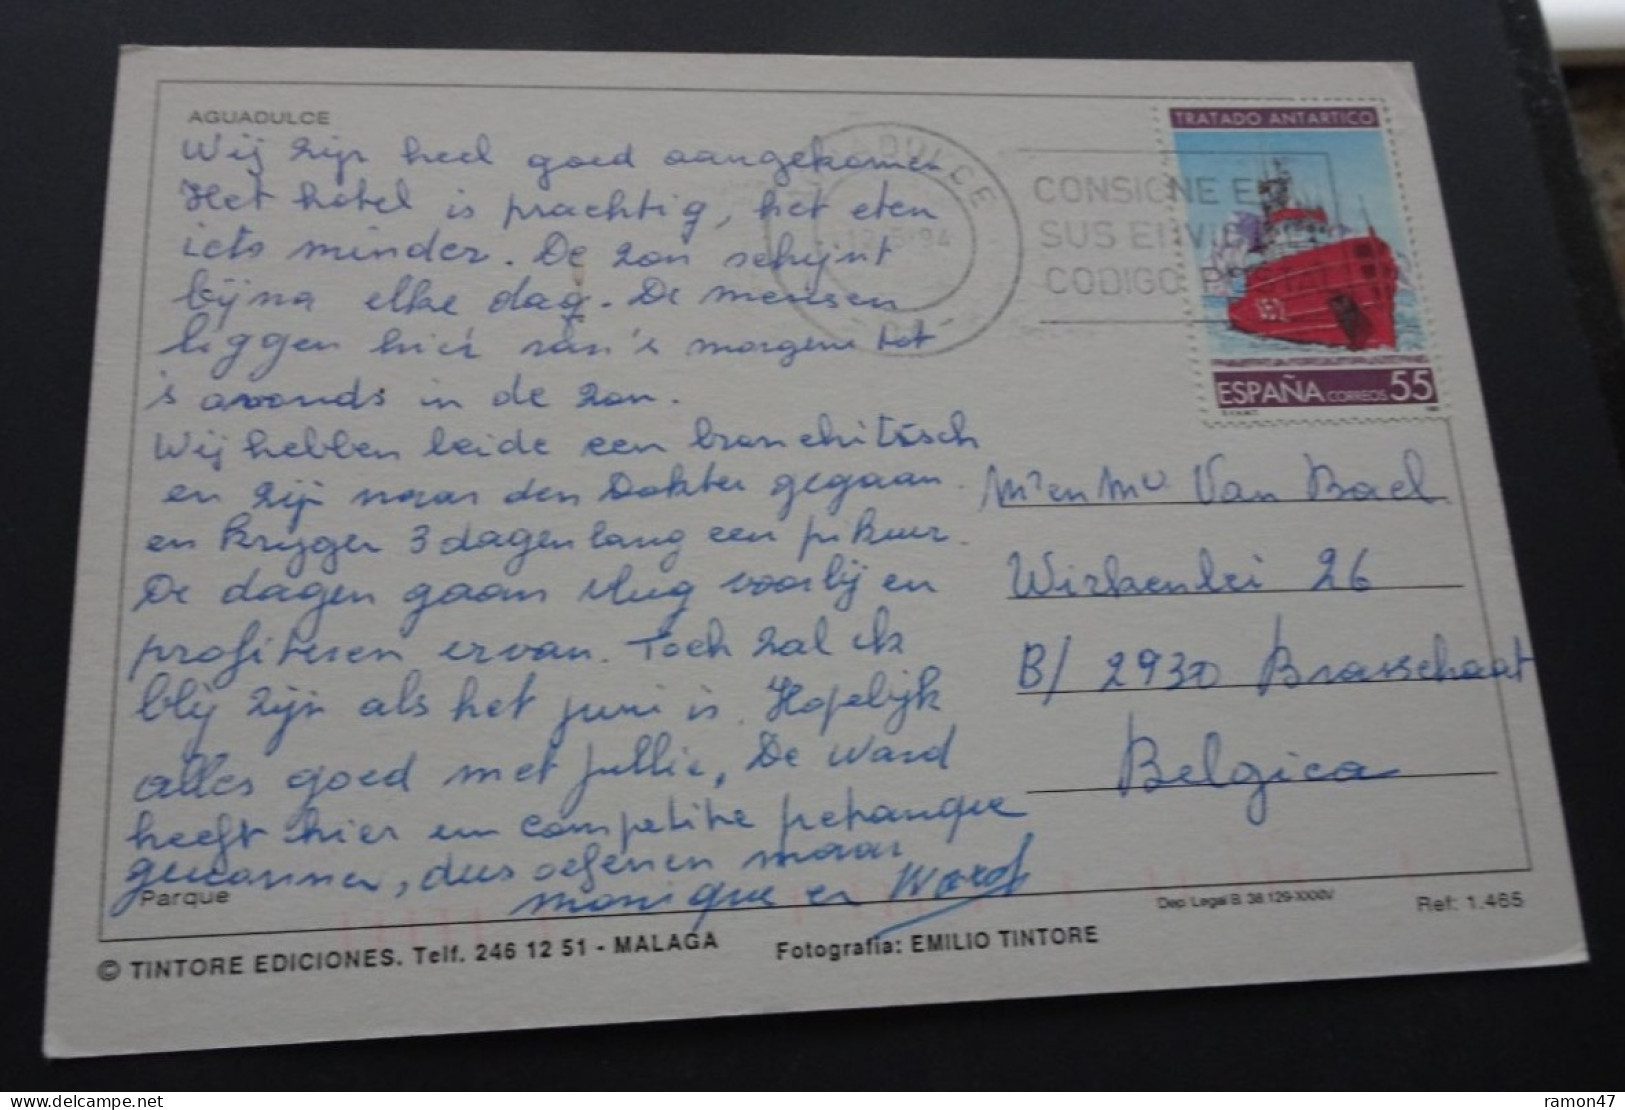 AGUADULCE
Wij zijn heel goed aangekomen
Het hotel is prachtig, het eten
iets minder. De zon schijnt
bijna elke dag. De mensen
liggen hier van 's morgens tot
's avonds in de zon.
Wij hebben beide een bronchitisch
en zijn naar den Dokter gegaan.
en krijgen 3 dagen lang een pikuur.
De dagen gaan vlug voorbij en
profiteren ervan. Toch zal ik
blij zijn als het juni is. Hopelijk
alles goed met jullie, De Ward
heeft hier een competitie petanque
gewonnen, dus oefenen maar
monique en Ward
Parque
DULCE
12-5-94
CONSIGNE EN
SUS ENVIOS EL
CODIGO POSTAL
TRATADO ANTARTICO
ESPAÑA CORREOS 55
Mr en Mv Van Bael
Wirkenlei 26
B/ 2930 Brasschaat
Belgica
Dep. Legal B. 38.129-XXXIV
Ref: 1.465
© TINTORE EDICIONES. Telf. 246 12 51 - MALAGA
Fotografia: EMILIO TINTORE
delcampe.net
ramon47